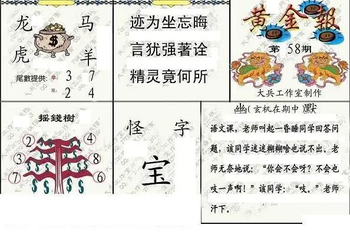 龙 马
虎 羊
尾數提供: 3 7
2 4
迹为坐忘晦
言犹强著诠
精灵竟何所
黄金報
第 58期
大兵工作室制作
搖錢樹
② ④
① ⑧
⑥ ⑦
怪 字
宝
(玄机在期中
语文课，老师叫起一昏睡同学回答问
题，该同学迷迷糊糊啥也说不出。老
师无奈地说：“你会不会呀？不会也
吱一声啊！”该同学：“吱。”老师
汗下。